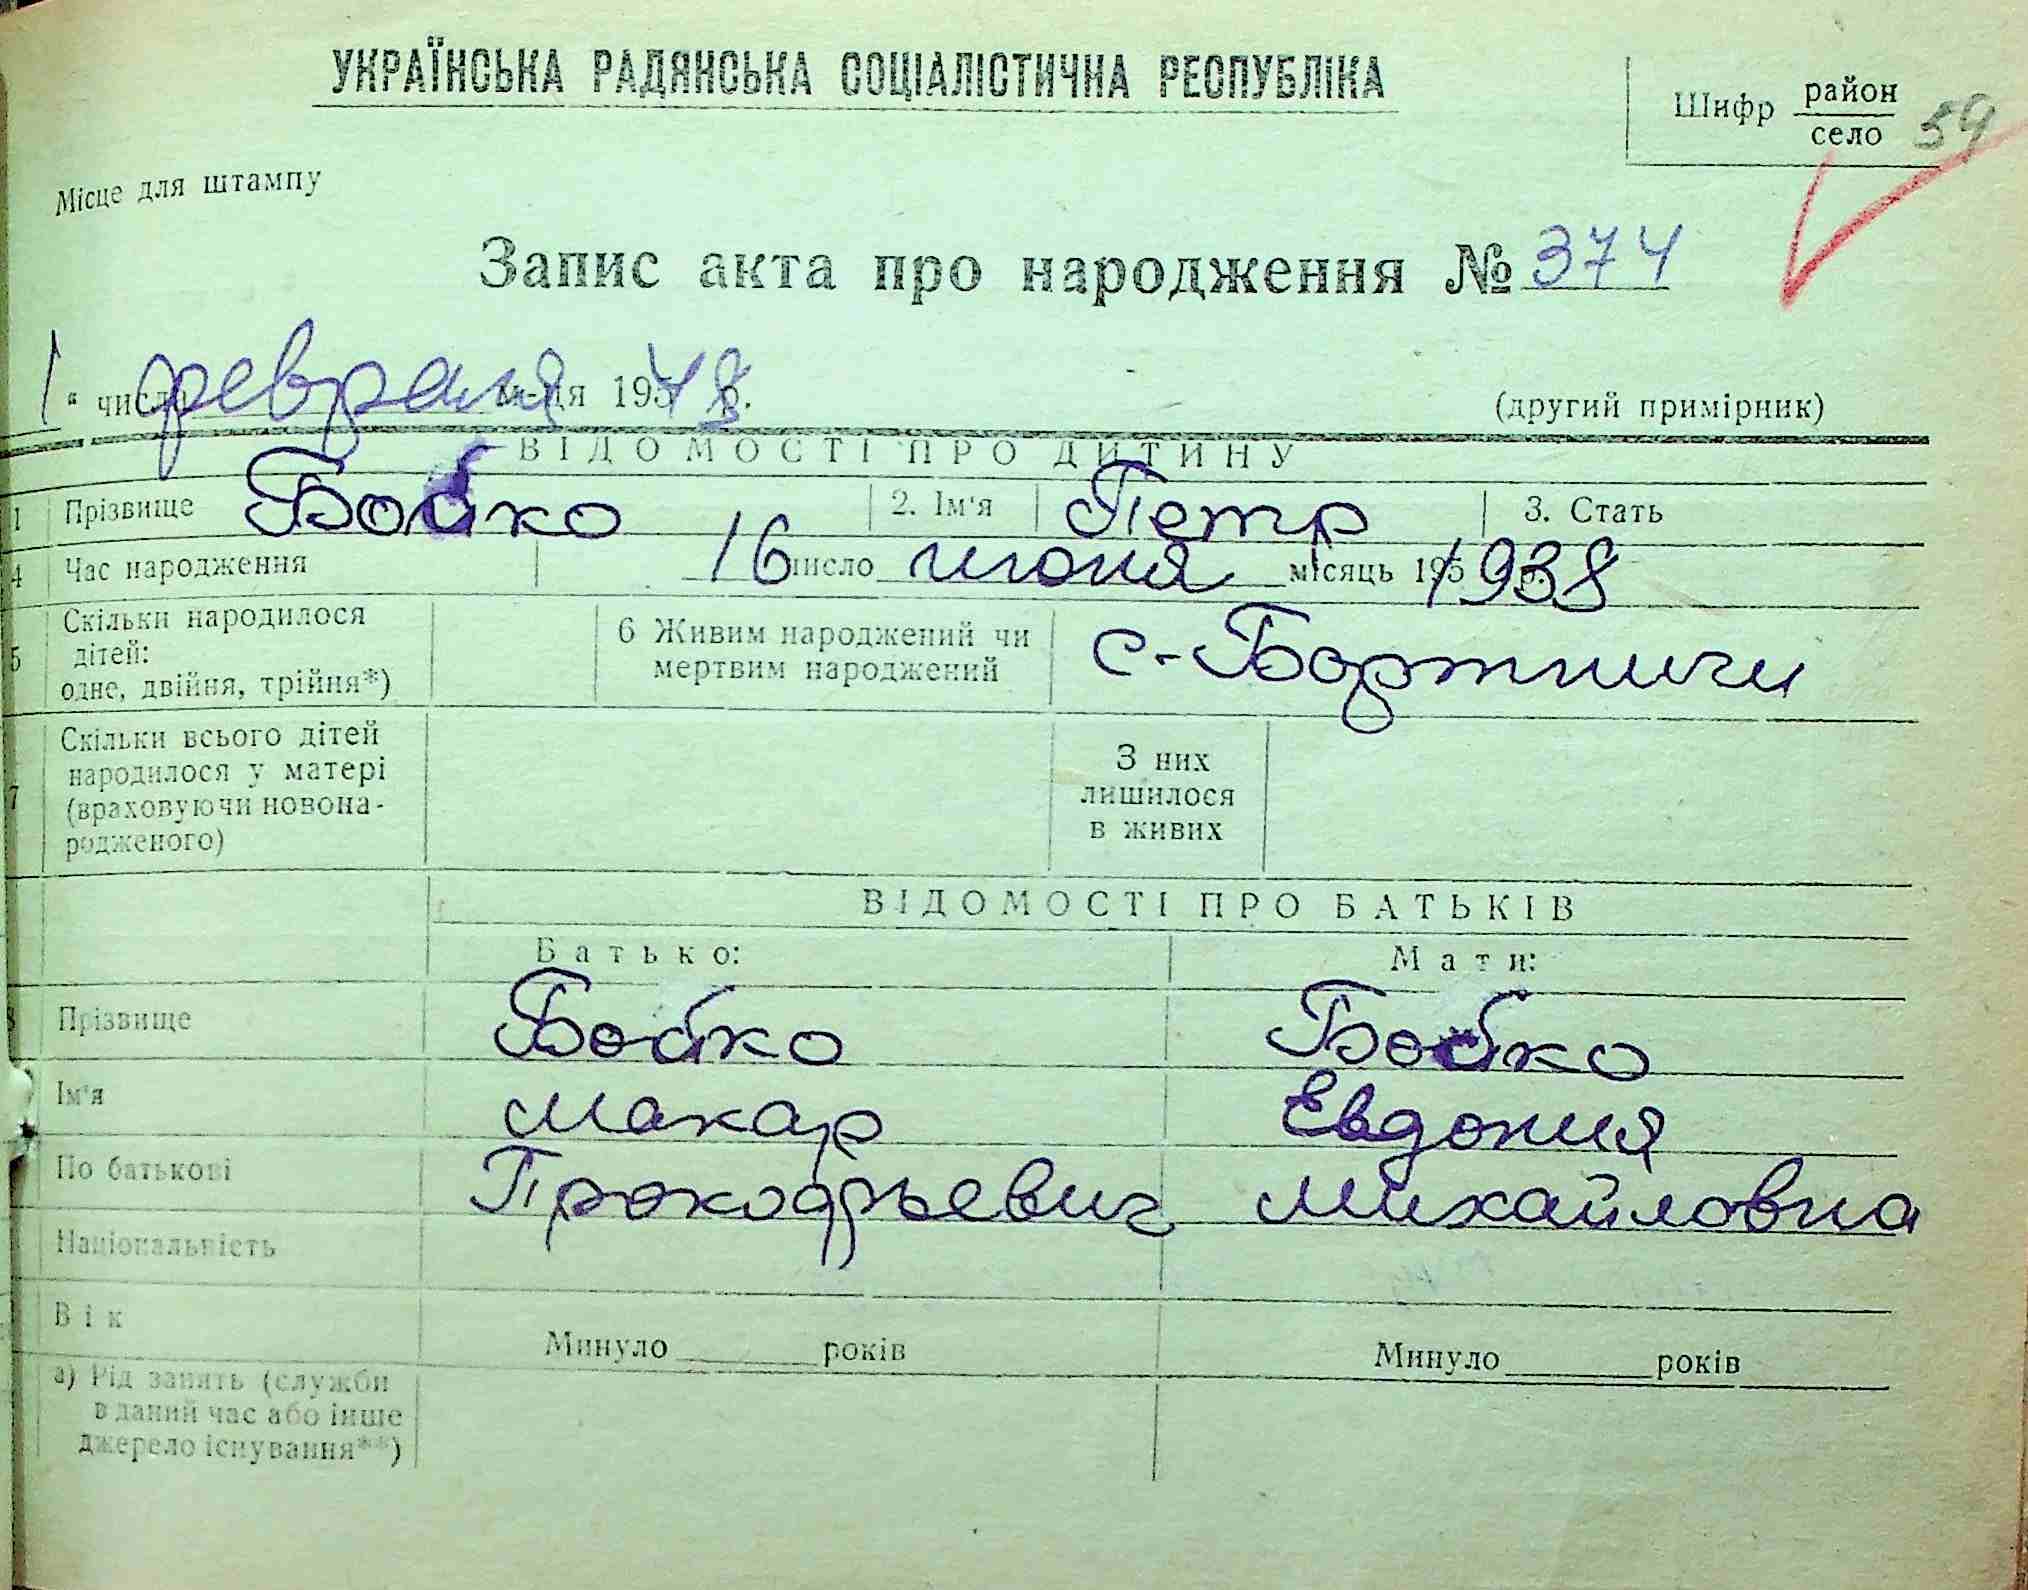 УКРАЇНСЬКА РАДЯНСЬКА СОЦІАЛІСТИЧНА РЕСПУБЛІКА
Шифр район
село 59
Місце для штампу
Запис акта про народження № 374
1 " число февраля м-ця 1948 р.
(другий примірник)
ВІДОМОСТІ ПРО ДИТИНУ
1 Прізвище Бобко 2. Ім'я Петр 3. Стать
4 Час народження 16 число июня місяць 195 1938
5 Скільки народилося дітей: одне, двійня, трійня*) 6 Живим народжений чи мертвим народжений с-Бортничи
7 Скільки всього дітей народилося у матері (враховуючи новона-родженого) З них лишилося в живих
ВІДОМОСТІ ПРО БАТЬКІВ
Батько: Мати:
8 Прізвище Бобко Бобко
Ім'я Макар Евдокия
По батькові Прокофьевич Михайловна
Національність
Вік Минуло ______ років Минуло ______ років
а) Рід занять (служби в даний час або інше джерело існування**)